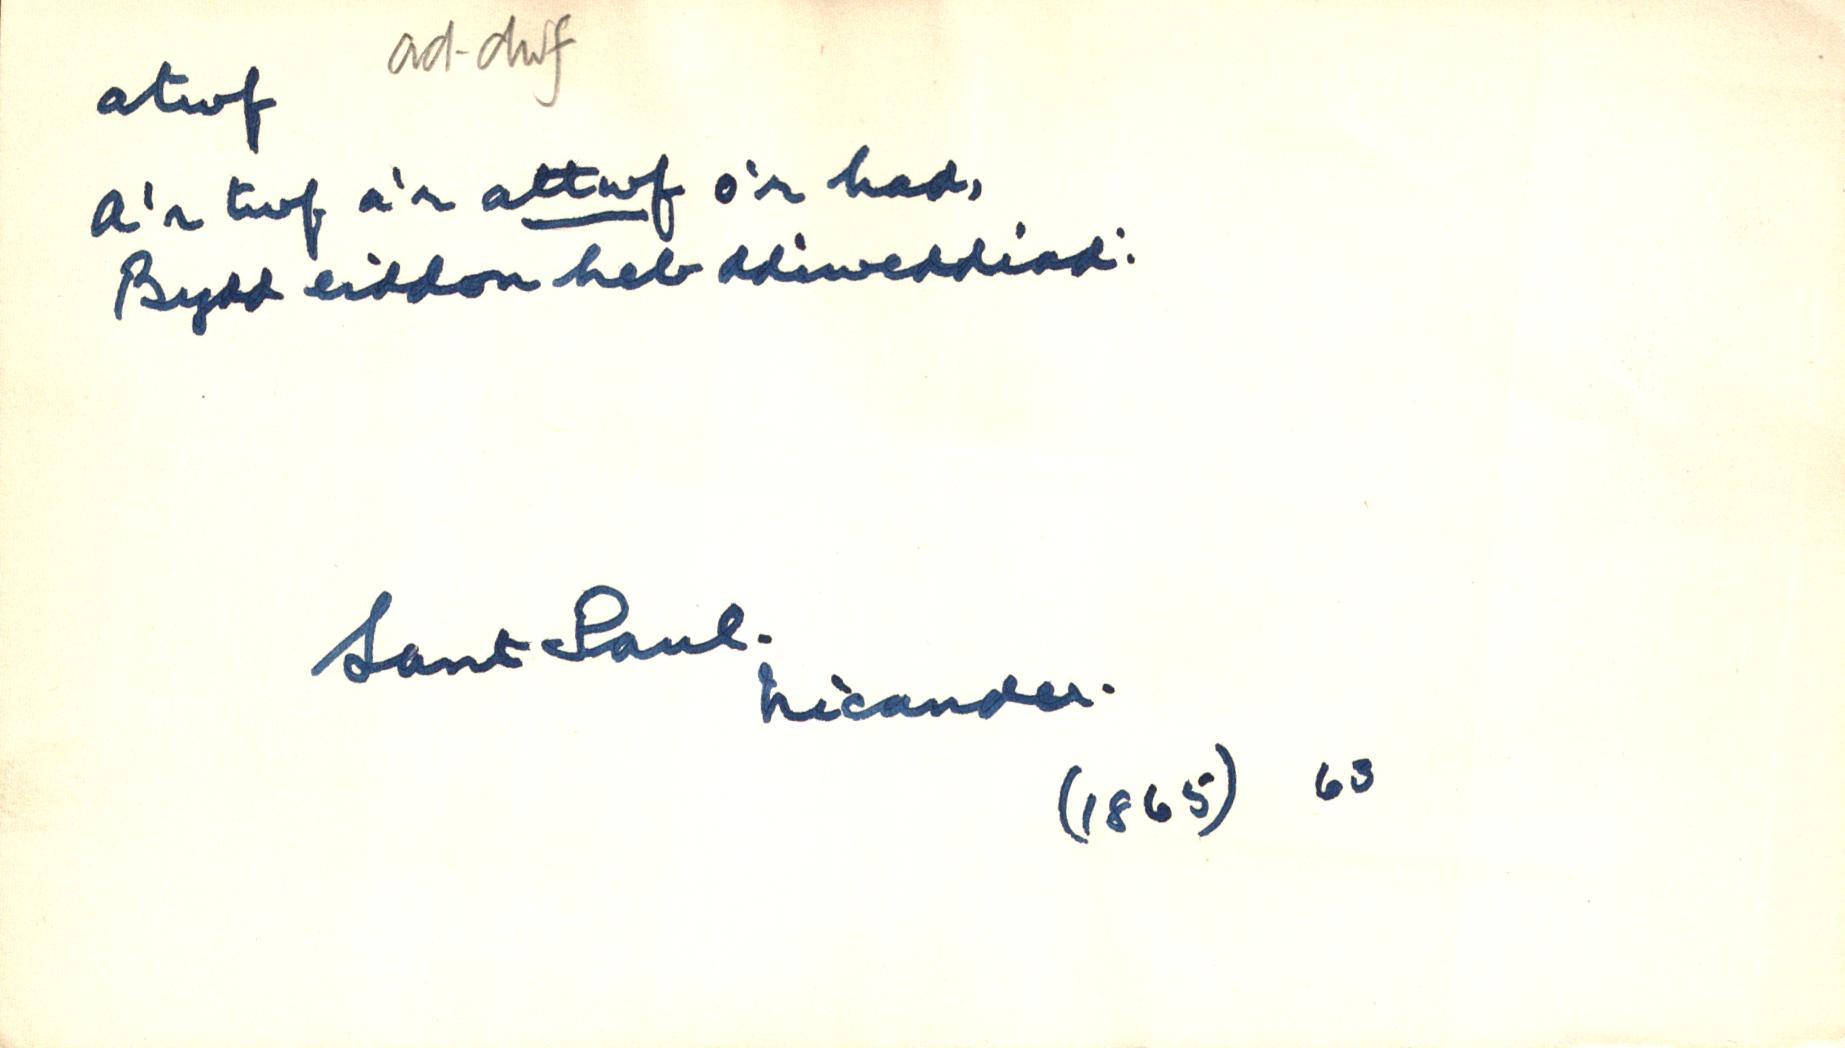 ad-dwf
atwf
A'r twf a'r attwf o'r had,
Bydd eiddon heb ddiweddiad:
Sant Paul.
Nicander.
(1865) 63